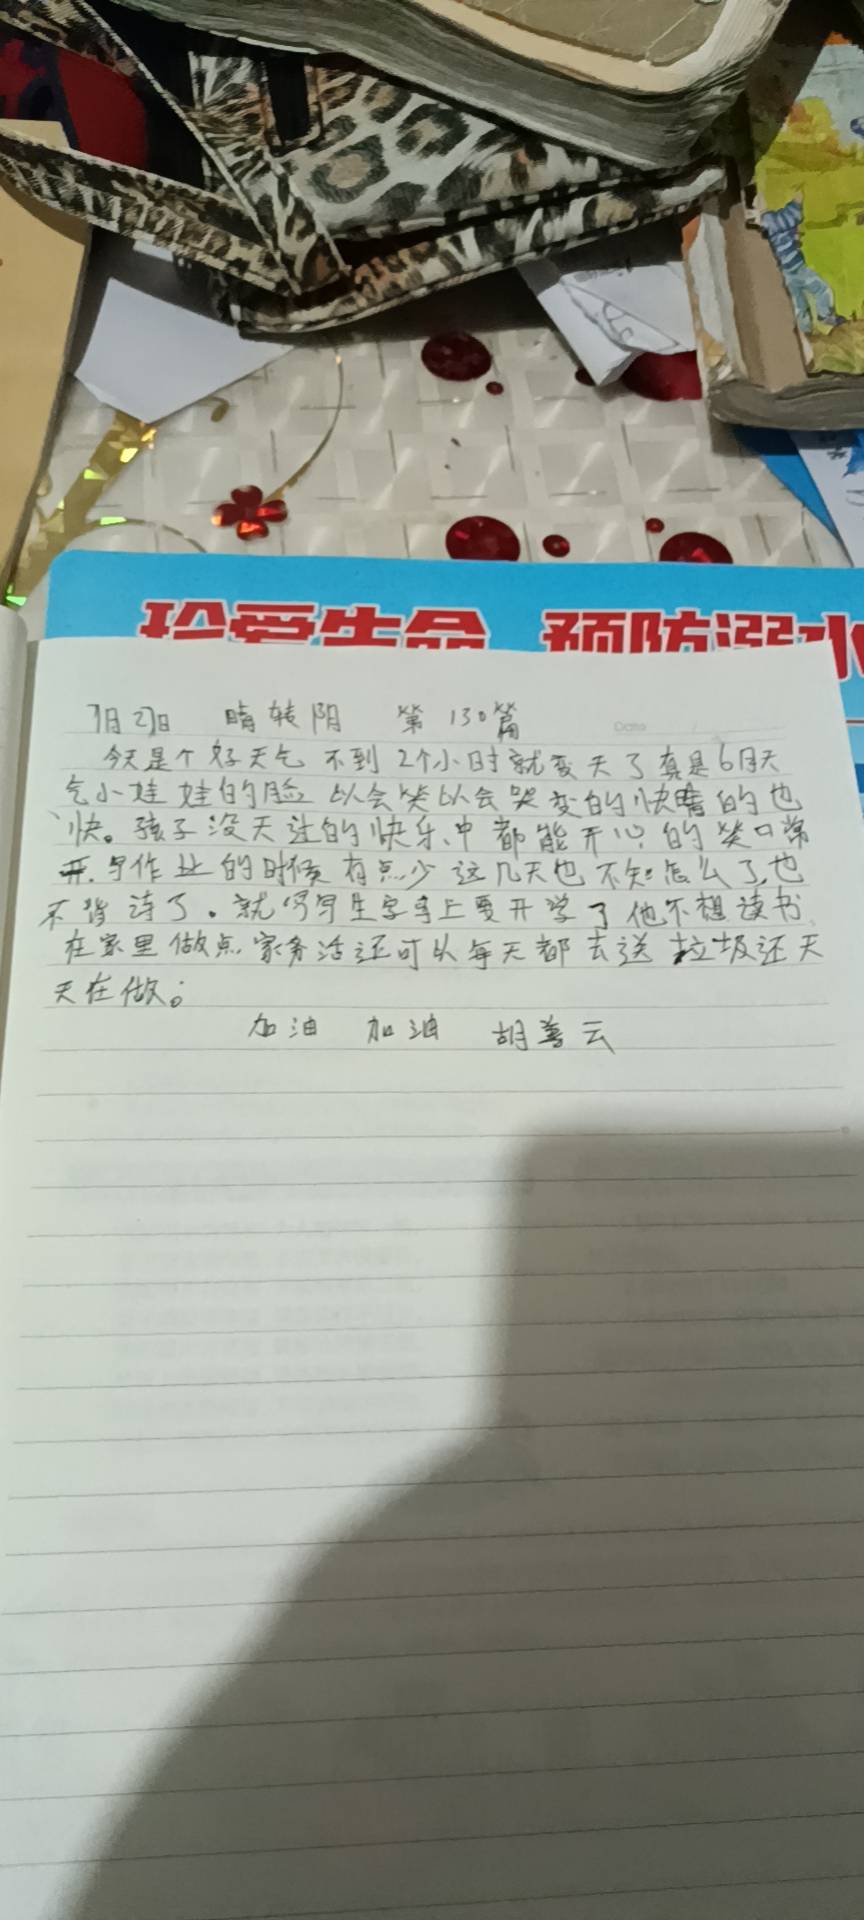 珍爱生命 预防溺水
7月27日 晴转阴 第130篇
Date
今天是个好天气 不到2个小时就变天了真是6月天
气小娃娃的脸 以会笑以会哭变的快晴的也
快。孩子没天过的快乐、中都能开心的笑口常
开.写作业的时候有点少这几天也不知怎么了,也
不背诗了。就写写生字马上要开学了他不想读书、
在家里做点家务活还可以每天都去送垃圾还天
天在做。
加油 加油 胡善云